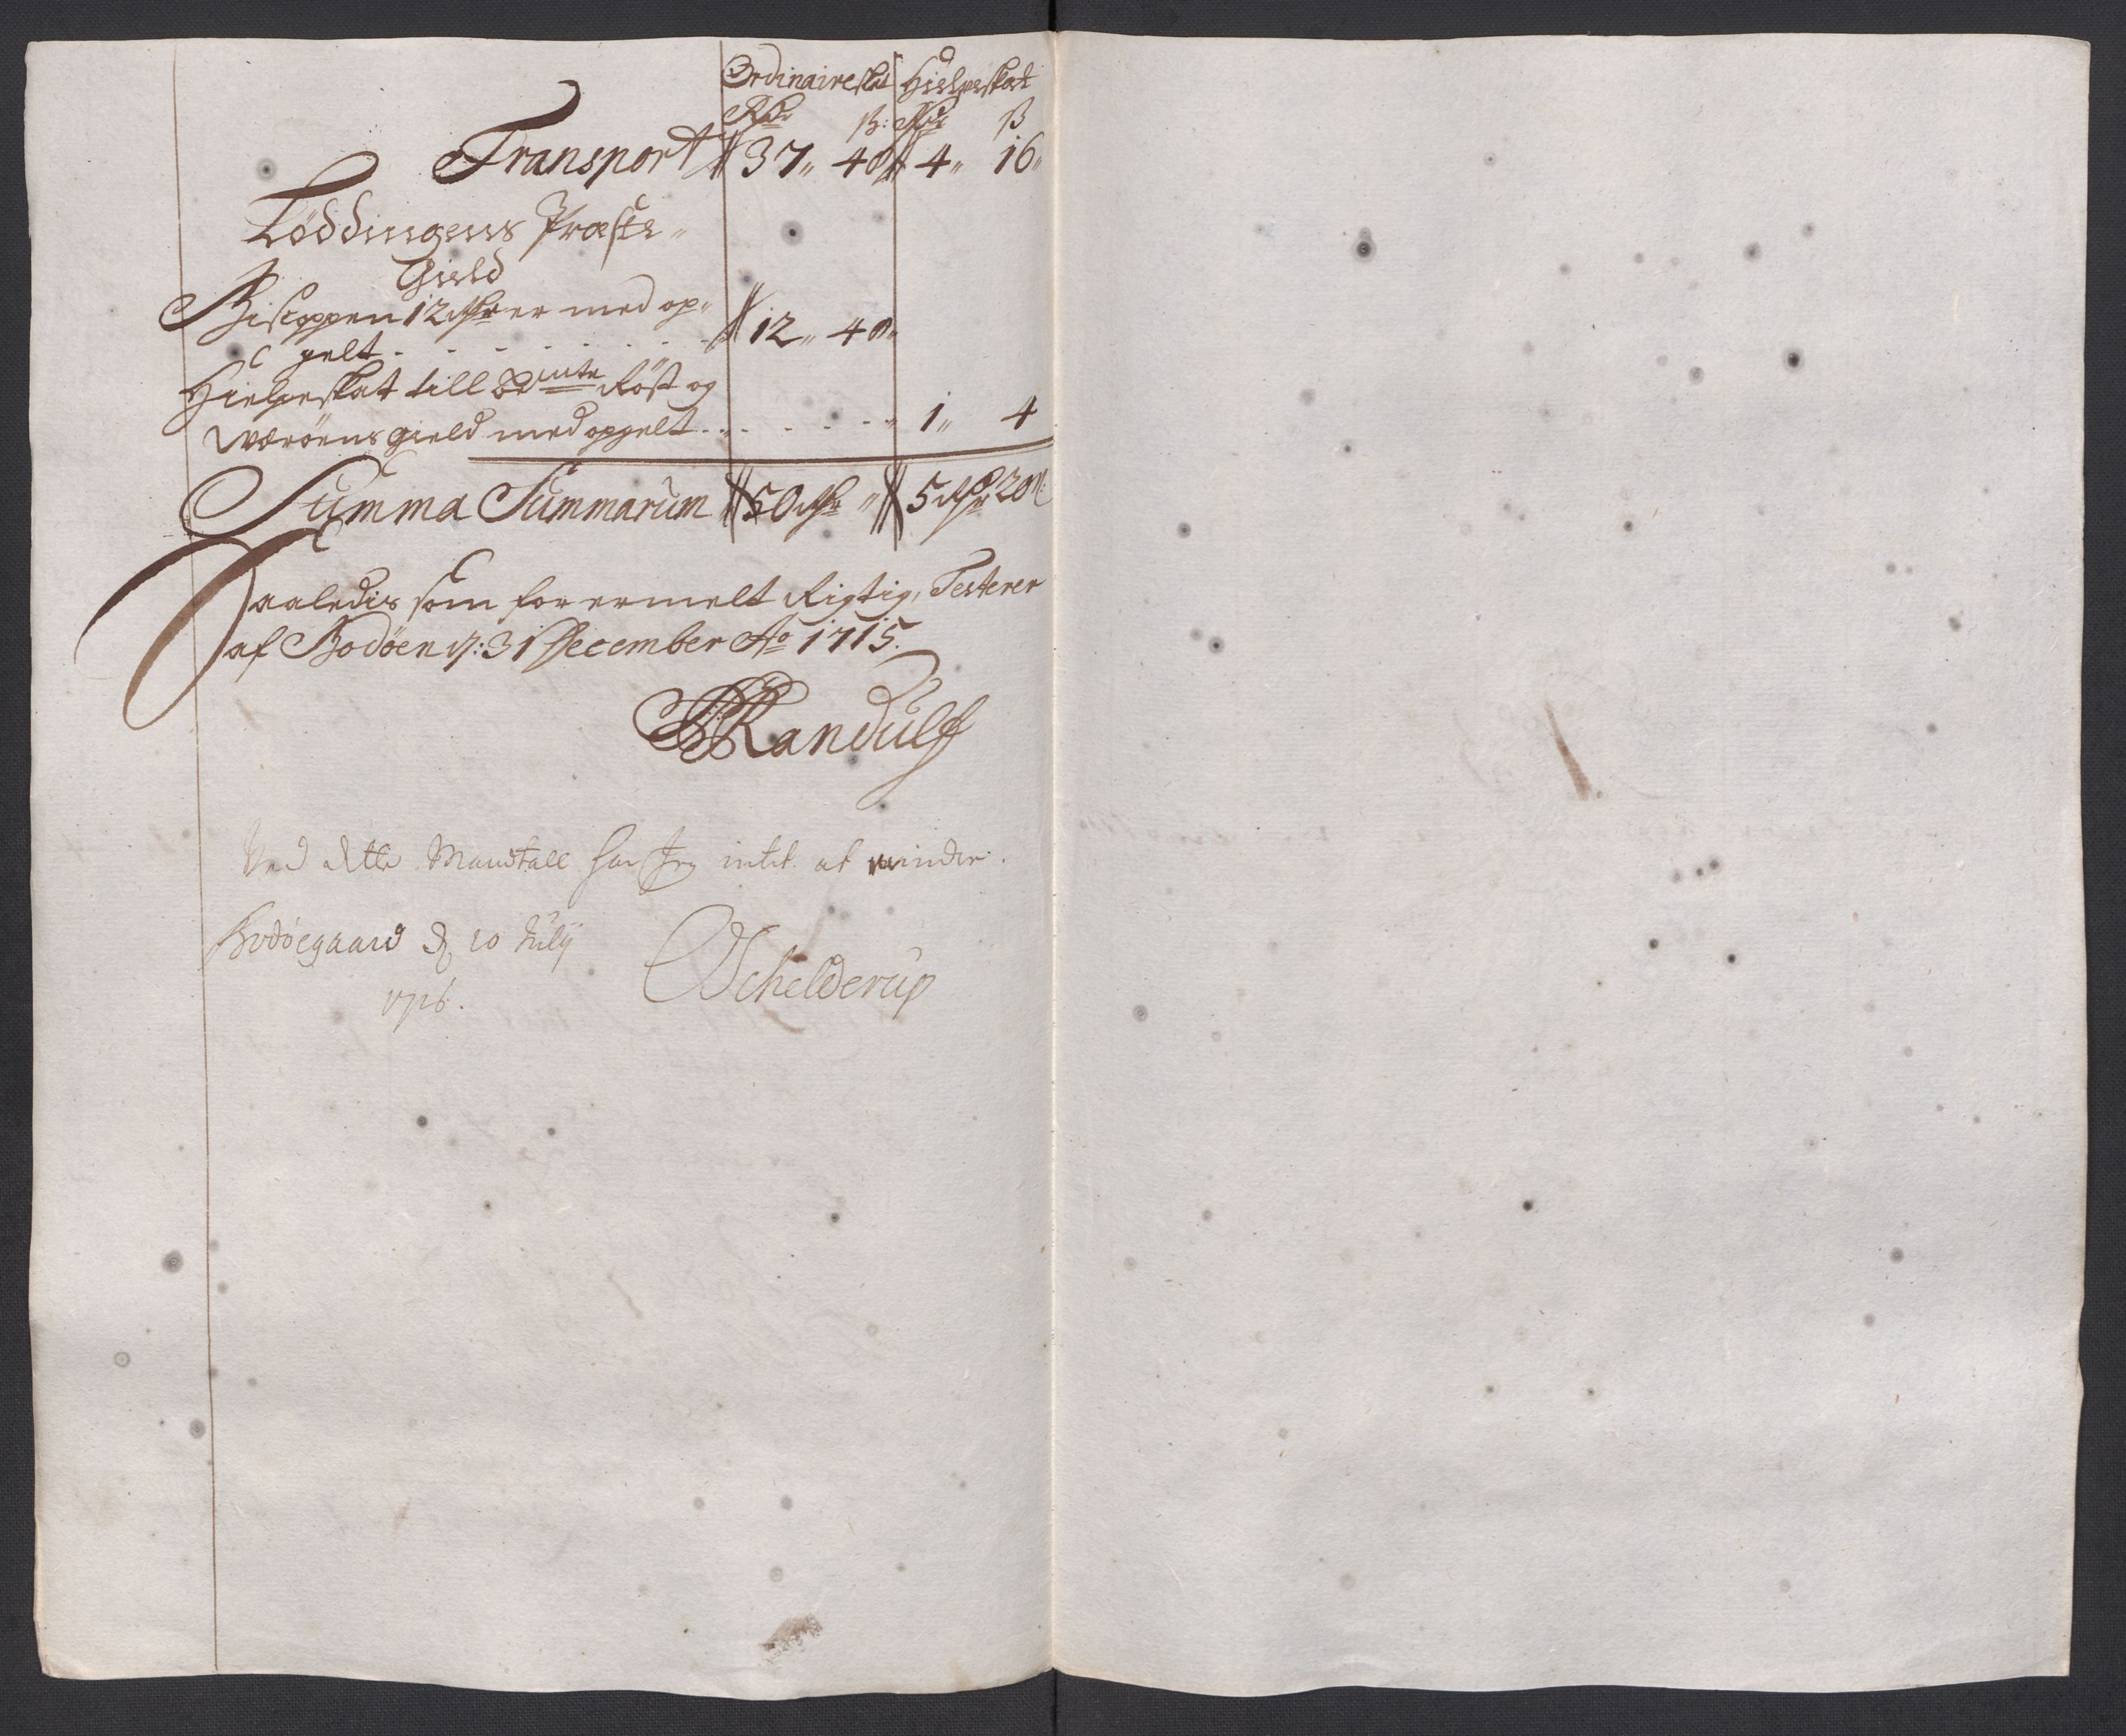 Ordinaire skat Hielpeskat
Rdr ß: Rdr ß
Transport 37„ 40 4„ 16„
Løddingens Præste„
Gield
Biscoppen 12 Rdr er med op„
gelt . . . . . . . 12„ 40„
Hielpeskat till Røst og
Værøens gield med opgelt . . . . . . 1„ 4
Summa Summarum 50 Rdr „ 5 Rdr 20
Saaledis som forermelt Rigtig, Testerer
af Bodøen d: 31 December Ao 1715.
Randulf
Ved dette Mandtall har Jeg intet at minde.
Bodøegaard d 10 Julÿ
1716.
Schelderup